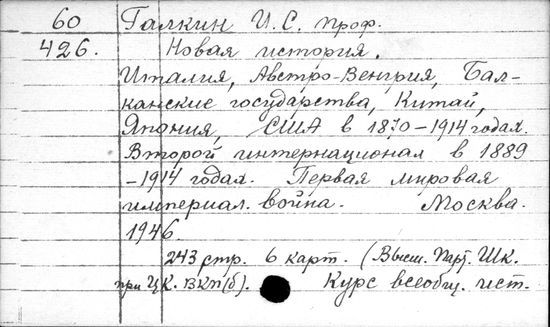 60 Галкин И. С. проф.
426. Новая история.
Италия, Австро-Венгрия, Бал-
канские государства, Китай,
Япония, США в 1870-1914 годах.
Второй интернационал в 1889
-1914 годах. Первая мировая
империал. война. Москва.
1946.
243 стр. 6 карт. (Высш. Парт. Шк.
при ЦК. ВКП(б). Курс всеобщ. ист.